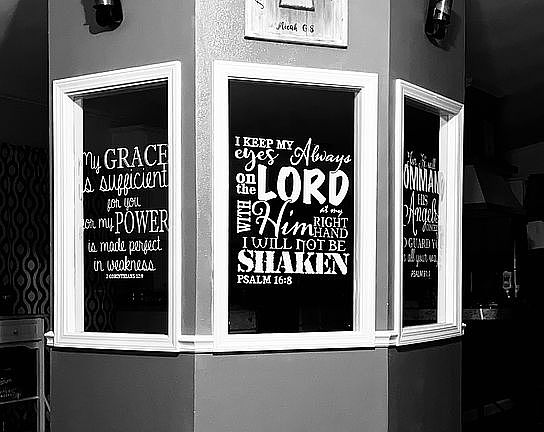 Micah 6:8
My GRACE
is sufficient
for you
for my POWER
is made perfect
in weakness
2 CORINTHIANS 12:9
I KEEP MY
eyes Always
on the LORD
WITH Him at my
RIGHT HAND
I WILL NOT BE
SHAKEN
PSALM 16:8
For He will
COMMAND
HIS
Angels
TO GUARD YOU
in all your ways
PSALM 91:11